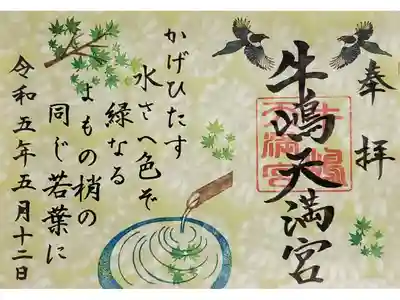 奉拝
牛嶋天満宮
かげひたす
水さへ色ぞ
緑なる
よもの梢の
同じ若葉に
令和五年五月十二日